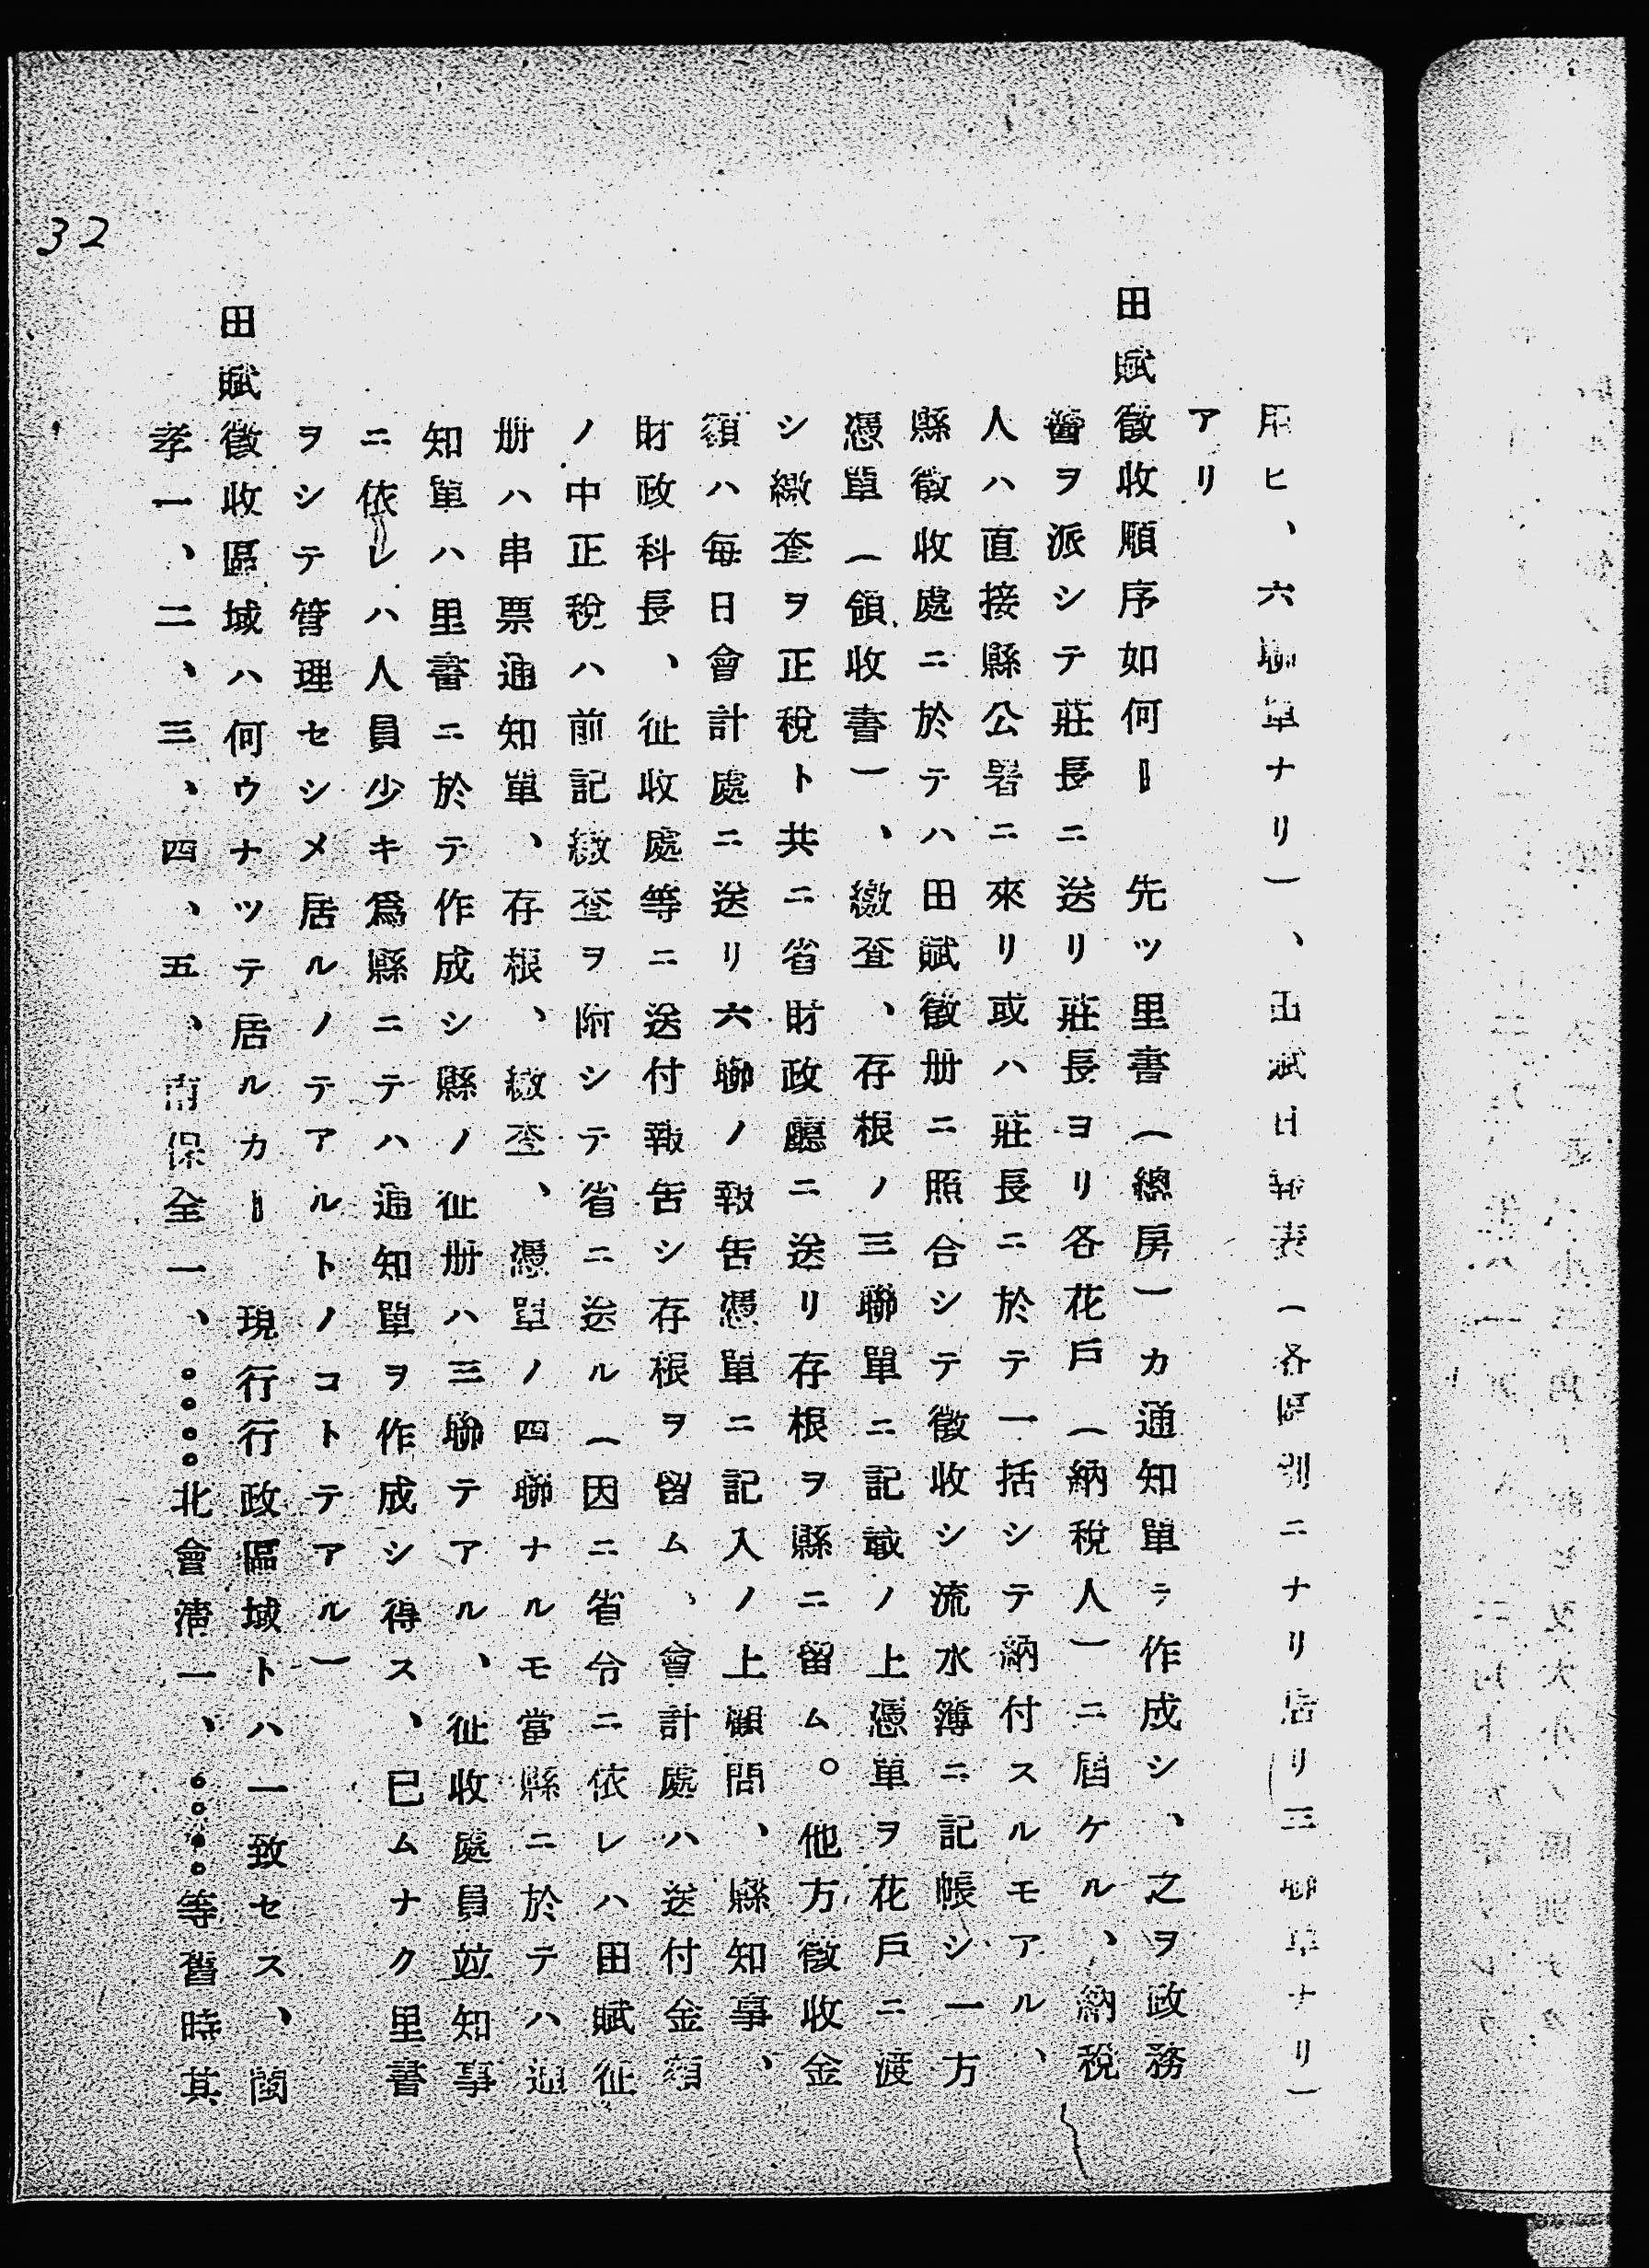 用ヒ、六聯單ナリ)、田賦日報表(各區別ニナリ居リ三聯單ナリ)
アリ
田賦徵收順序如何‖ 先ツ里書(總房)カ通知單ヲ作成シ、之ヲ政務
警ヲ派シテ莊長ニ送リ莊長ヨリ各花戶(納稅人)ニ屆ケル、納稅
人ハ直接縣公署ニ來リ或ハ莊長ニ於テ一括シテ納付スルモアル、
縣徵收處ニ於テハ田賦徵册ニ照合シテ徵收シ流水簿ニ記帳シ一方
憑單(領收書)、繳查、存根ノ三聯單ニ記載ノ上憑單ヲ花戶ニ渡
シ繳查ヲ正稅ト共ニ省財政廳ニ送リ存根ヲ縣ニ留ム。他方徵收金
額ハ每日會計處ニ送リ六聯ノ報告憑單ニ記入ノ上顧問、縣知事、
財政科長、征收處等ニ送付報告シ存根ヲ留ム、會計處ハ送付金額
ノ中正稅ハ前記繳查ヲ附シテ省ニ送ル(因ニ省令ニ依レハ田賦征
册ハ串票通知單、存根、繳查、憑單ノ四聯ナルモ當縣ニ於テハ通
知單ハ里書ニ於テ作成シ縣ノ征册ハ三聯テアル、征收處員竝知事
ニ依レハ人員少キ爲縣ニテハ通知單ヲ作成シ得ス、已ムナク里書
ヲシテ管理セシメ居ルノテアルトノコトテアル)
田賦徵收區域ハ何ウナツテ居ルカ‖ 現行行政區域トハ一致セス、閩
孝一、二、三、四、五、南保全一、。。。。北會淸一、。。。。等舊時其
32